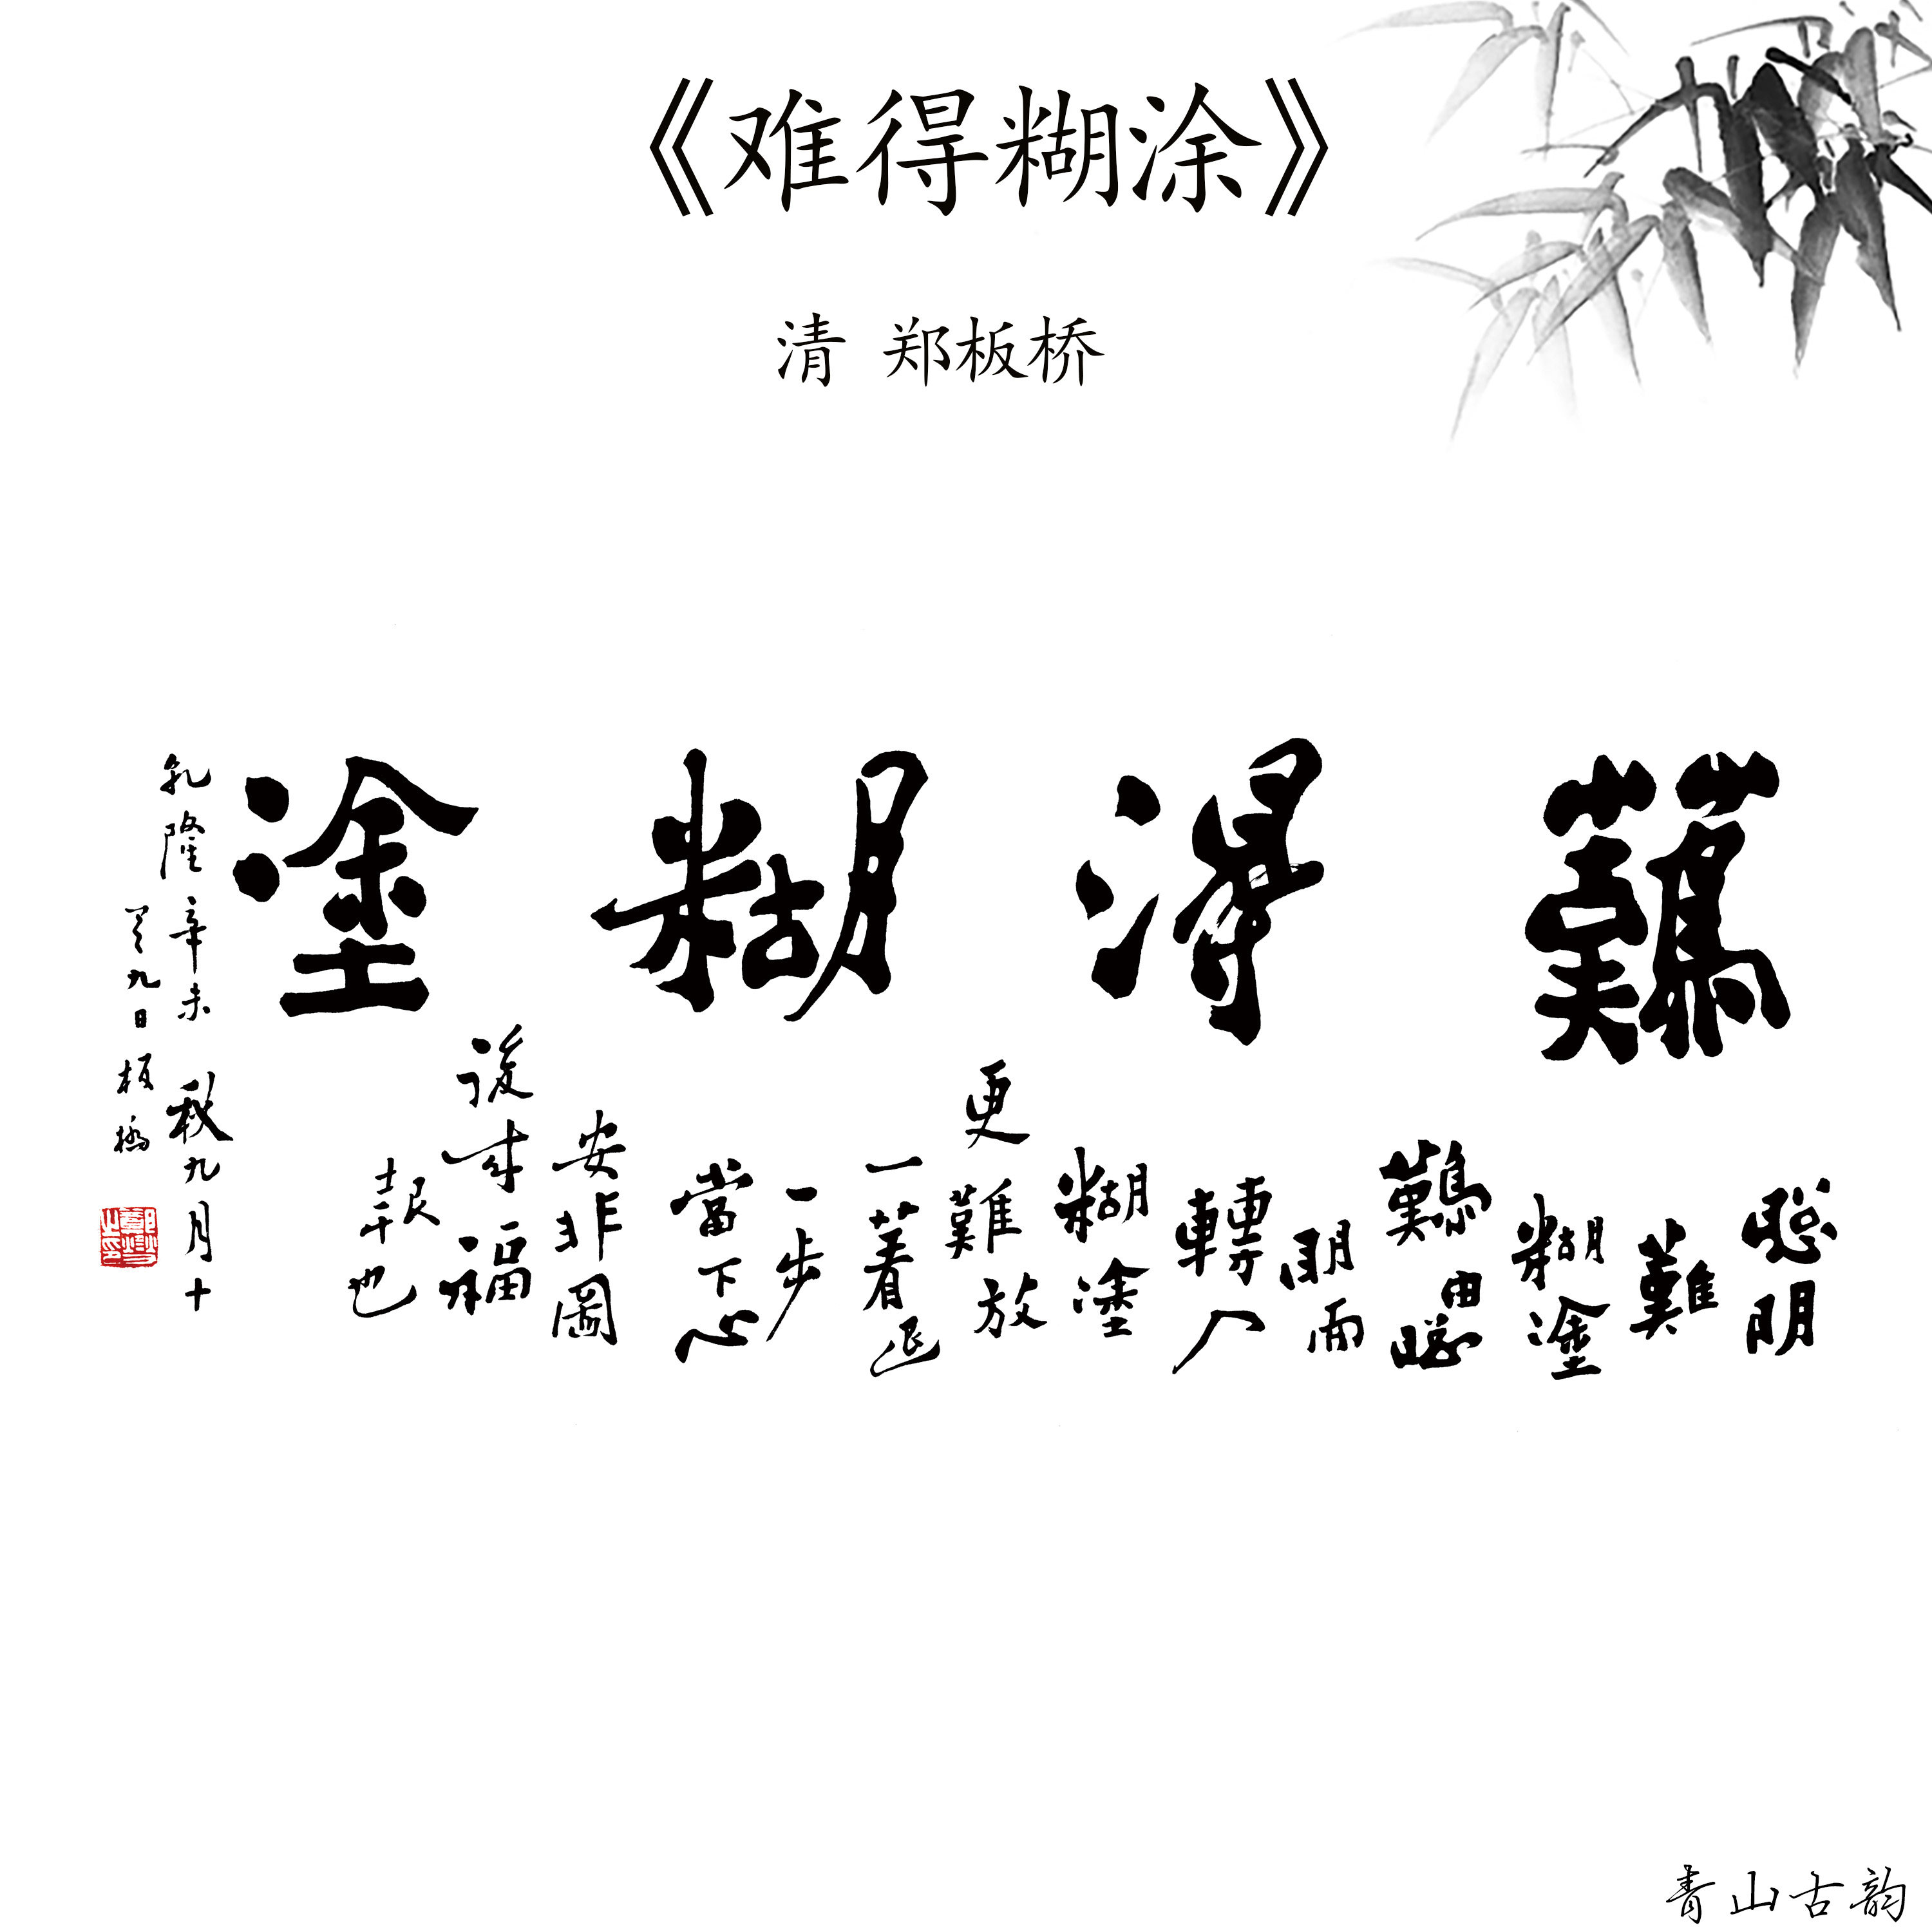 《难得糊涂》
清 郑板桥
難得糊塗
聰明
難
糊塗
難由聰
明而
轉入
糊塗
更難放
一着退
一步
當下心
安非圖
後來福
報也
乾隆辛未秋九月十
九日板橋
鄭燮之印
青山古韵